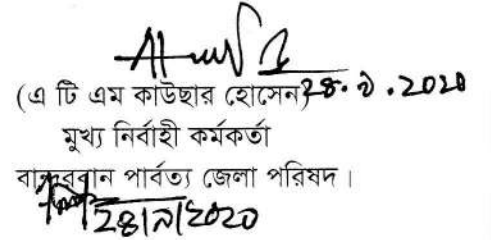 (এ টি এম কাউছার হোসেন) ২৪.৯.২০২০
মুখ্য নির্বাহী কর্মকর্তা
বান্দরবান পার্বত্য জেলা পরিষদ।
২৪/৯/২০২০